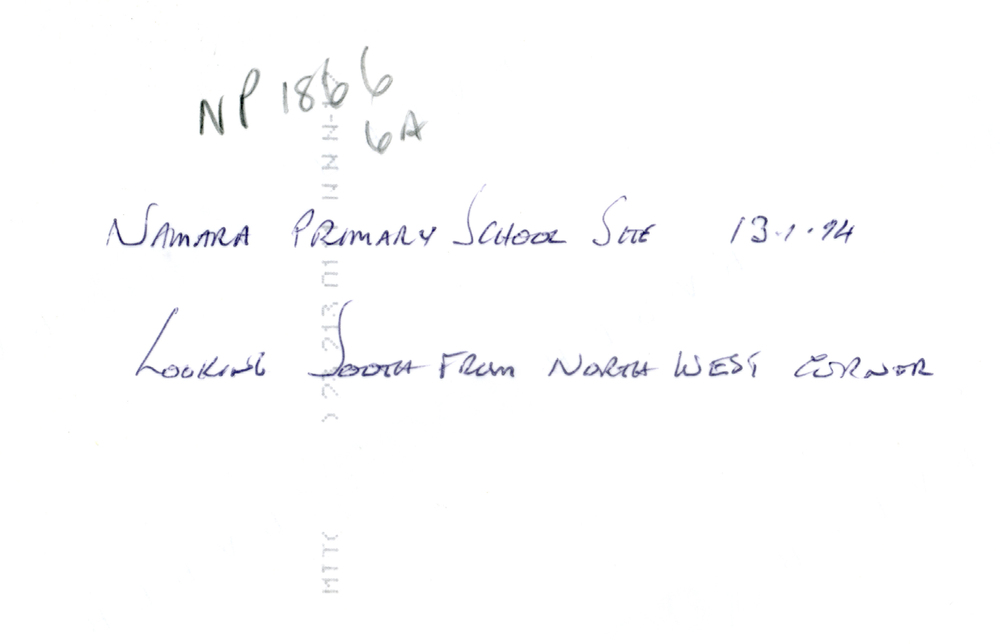 NP 1866
6A
NAMARA PRIMARY SCHOOL SITE 13.1.94
LOOKING SOUTH FROM NORTH WEST CORNER